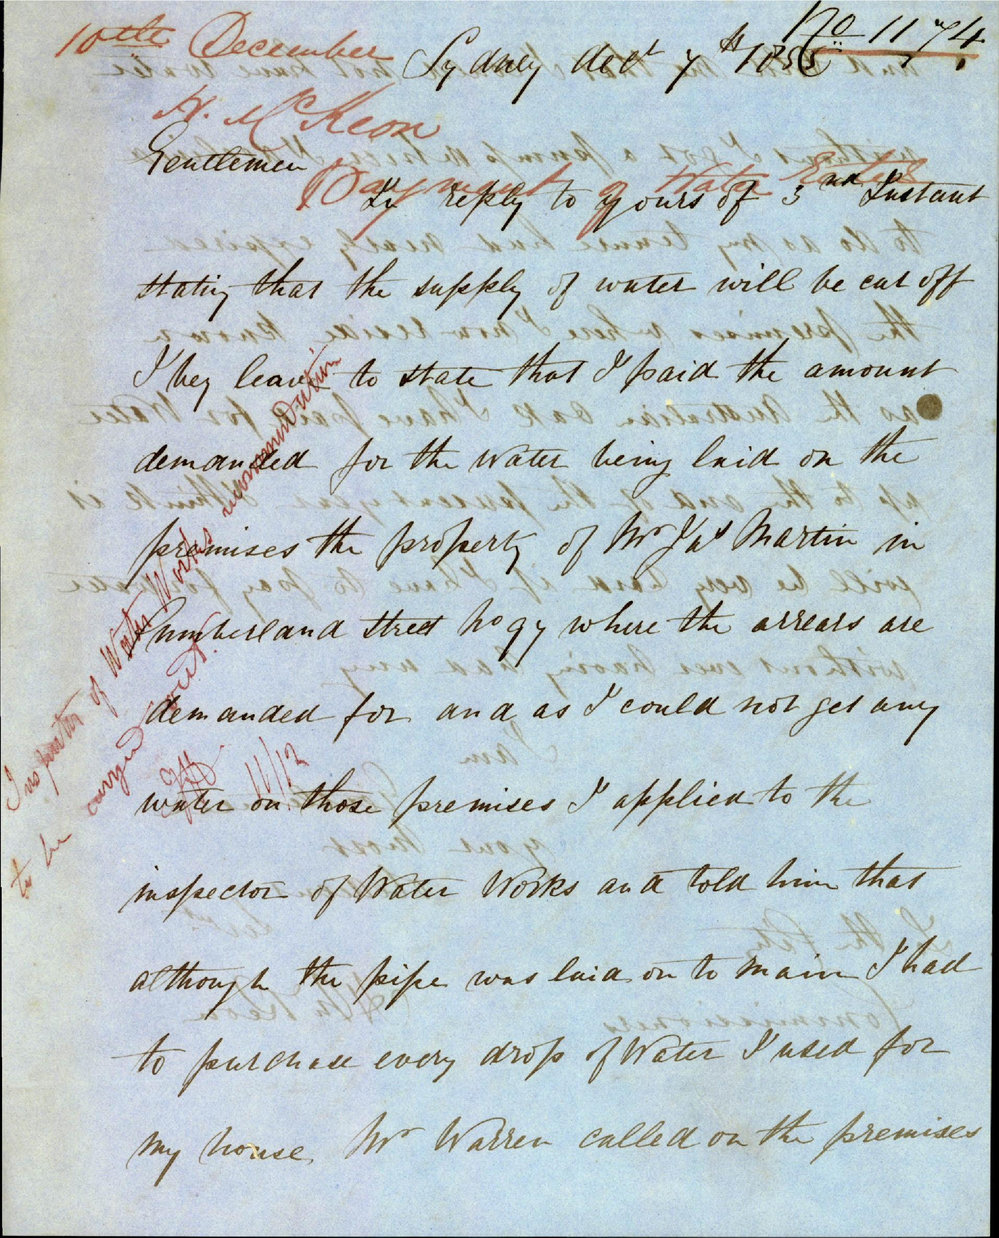 No 1174
10th December
Sydney decr 7th 1855
H. McKeon
Gentlemen
Payment of Water Rates
In reply to yours of 3nd Instant
stating that the supply of water will be cut off
I beg leave to state that I paid the amount
demanded for the water being laid on the
premises the property of Mr Jas Martin in
Cumberland street No 97 where the arrears are
demanded for and as I could not get any
water on those premises I applied to the
inspector of Water Works and told him that
although the pipe was laid on to main I had
to purchase every drop of Water I used for
my house. Mr Warren called on the premises
Inspector of Water Works recommendation
to be carried out.
11/12